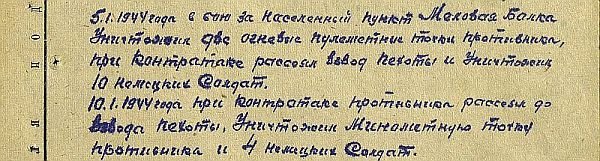 5.1.1944 года в бою за населенный пункт Меловая Балка
Уничтожил две огневые пулеметные точки противника,
при контратаке рассеял взвод пехоты и Уничтожил
10 немецких Солдат.
10.1.1944 года при контратаке противника рассеял до
взвода пехоты, Уничтожил Минометную точку
противника и 4 немецких Солдат.